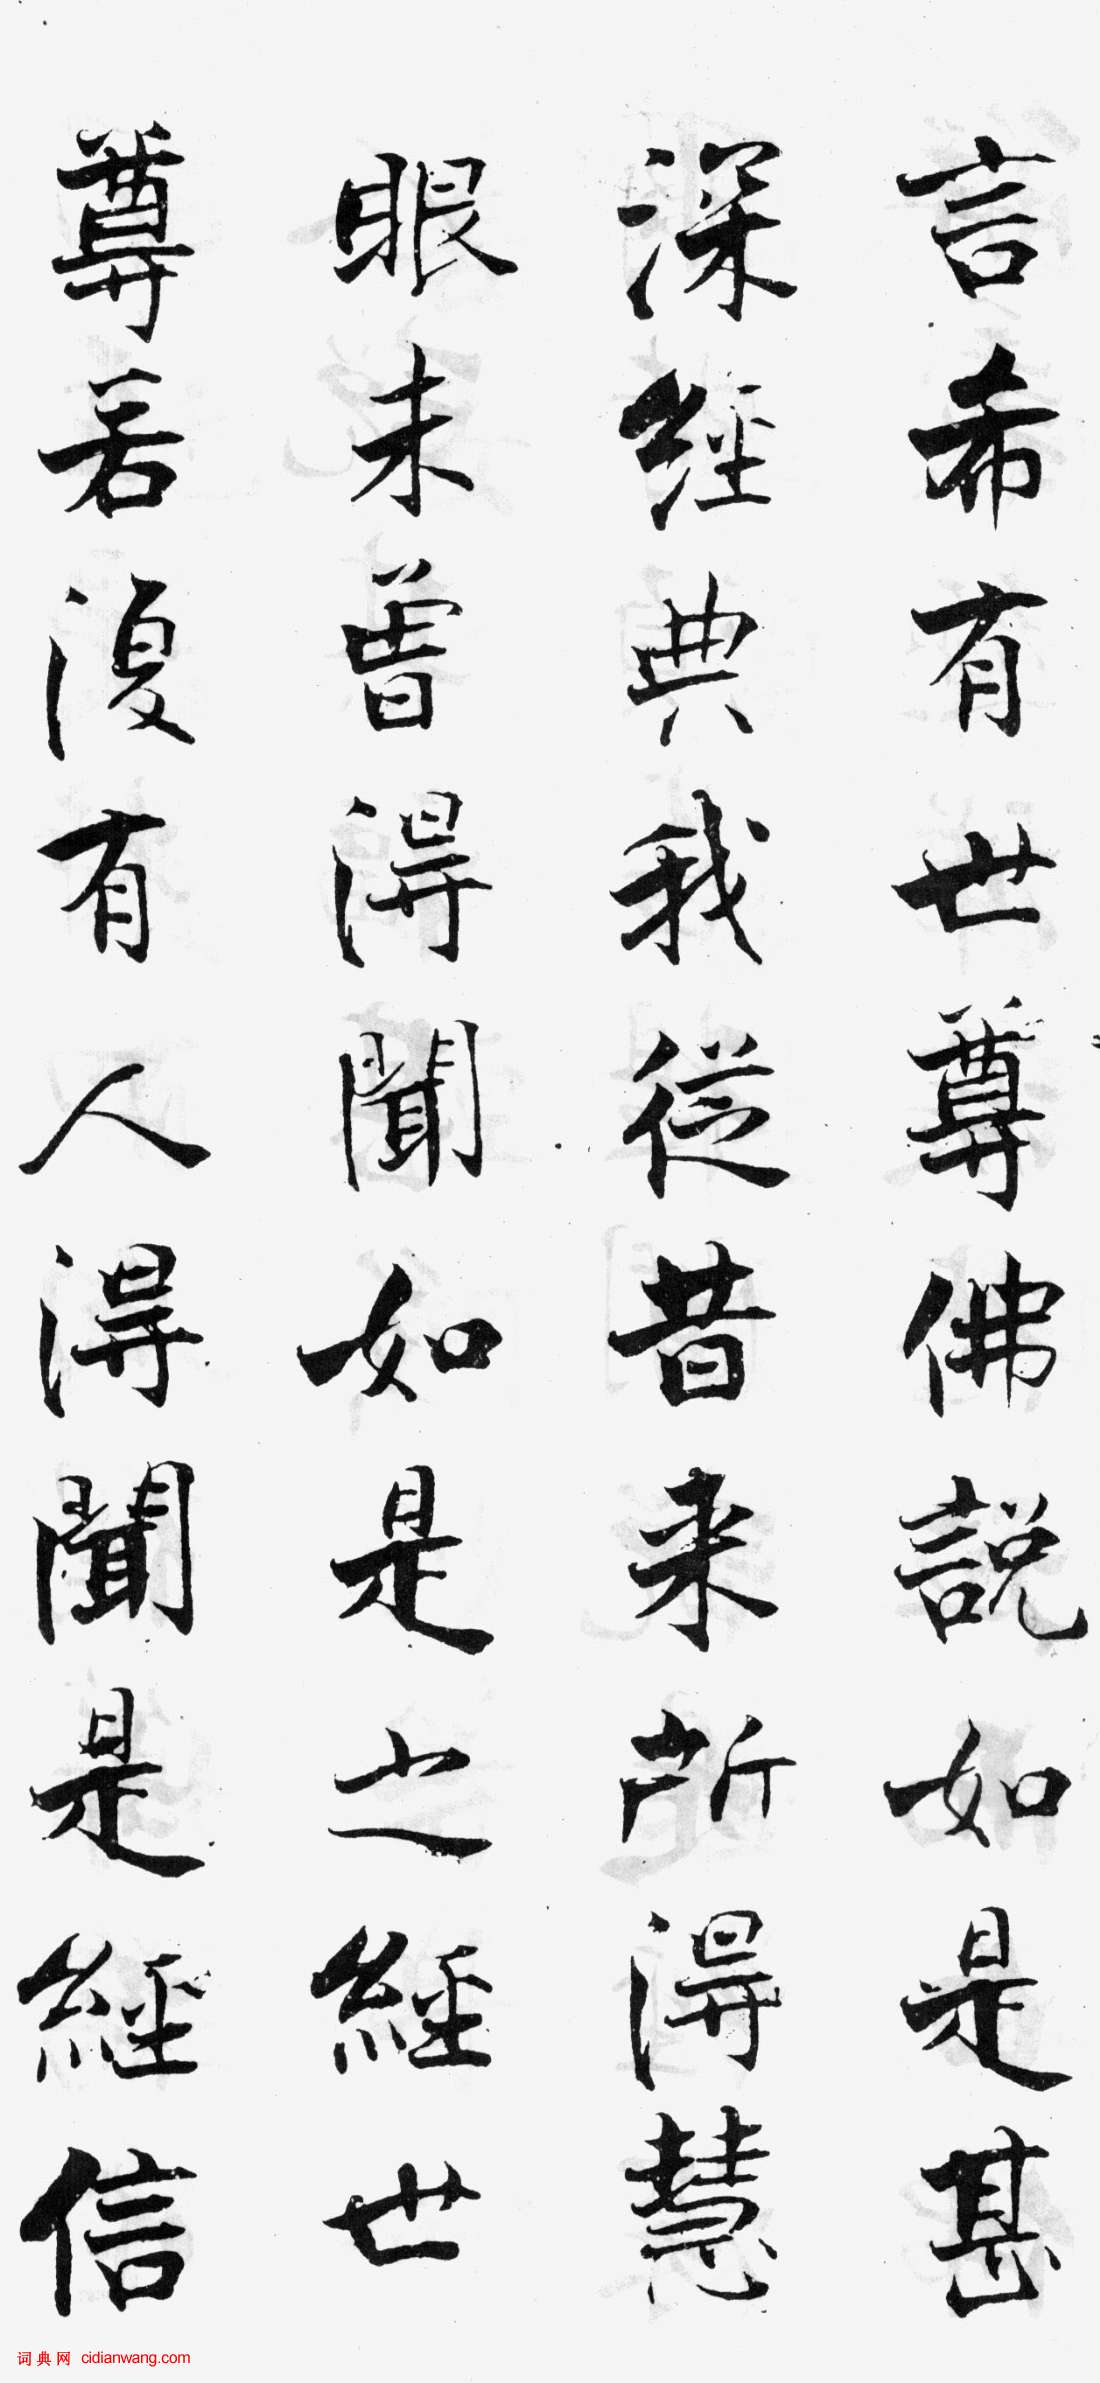 言希有世尊佛說如是甚
深經典我從昔来所得慧
眼未曾得聞如是之經世
尊若復有人得聞是經信
词典网 cidianwang.com